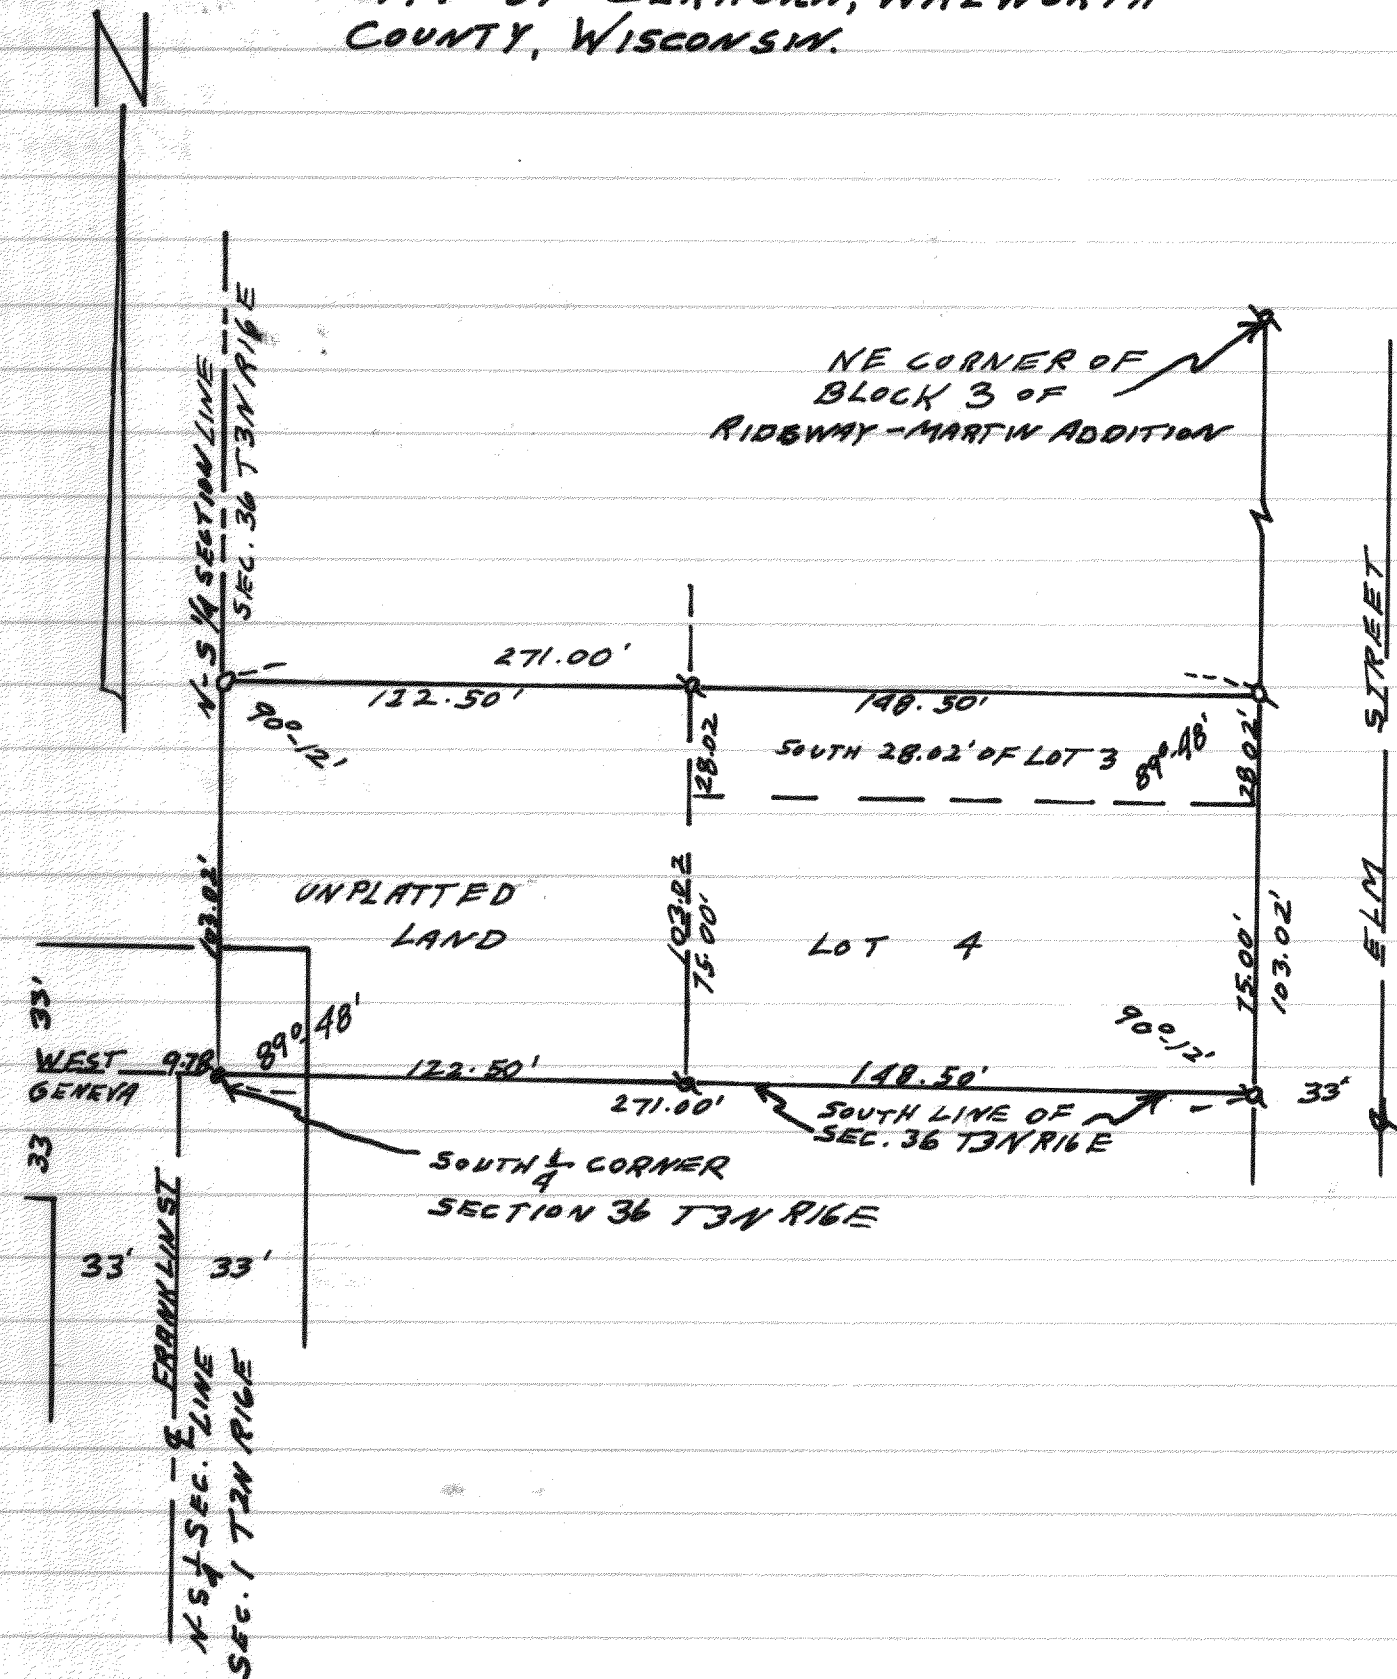 N
COUNTY, WISCONSIN.
N-S 1/4 SECTION LINE
SEC. 36 T3N R16E
NE CORNER OF
BLOCK 3 OF
RIDGWAY-MARTIN ADDITION
271.00'
122.50'
148.50'
90°-12'
28.02
SOUTH 28.02' OF LOT 3
89°-48'
28.02'
℄ ELM STREET
103.02'
UNPLATTED
LAND
103.02
75.00'
LOT 4
75.00'
103.02'
33'
WEST
GENEVA
9.78
89°-48'
90°-12'
122.50'
148.50'
271.00'
33'
SOUTH LINE OF
SEC. 36 T3N R16E
33
SOUTH 1/4 CORNER
SECTION 36 T3N R16E
33'
33'
℄ FRANKLIN ST
N-S 1/4 SEC. LINE
SEC. 1 T2N R16E